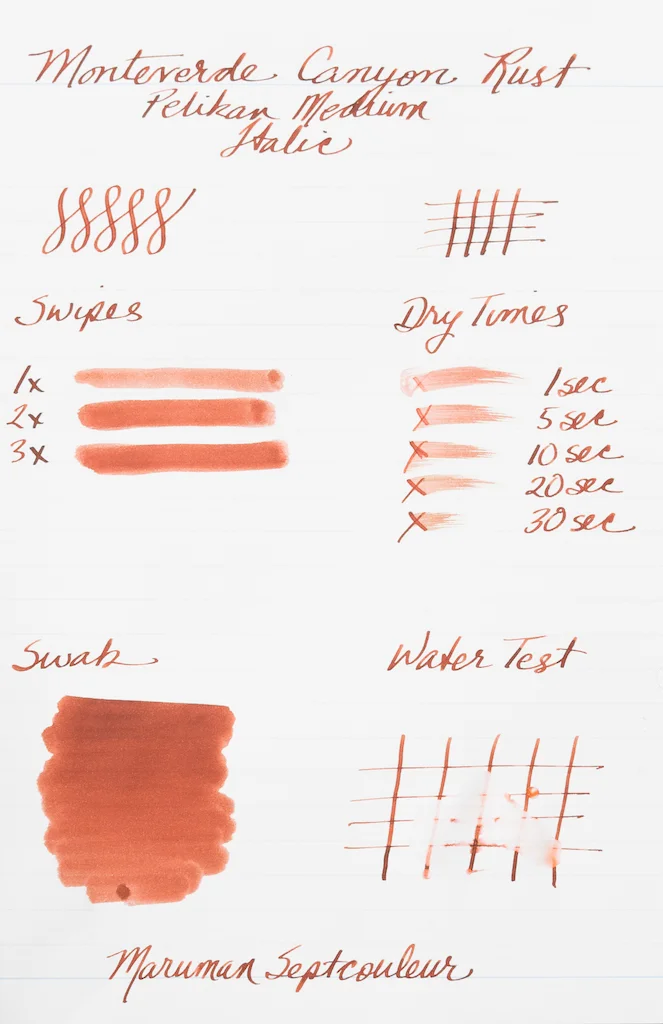 Monteverde Canyon Rust
Pelikan Medium
Italic
Swipes
1x
2x
3x
Dry Times
x 1 sec
x 5 sec
x 10 sec
x 20 sec
x 30 sec
Swab
Water Test
Maruman Septcouleur